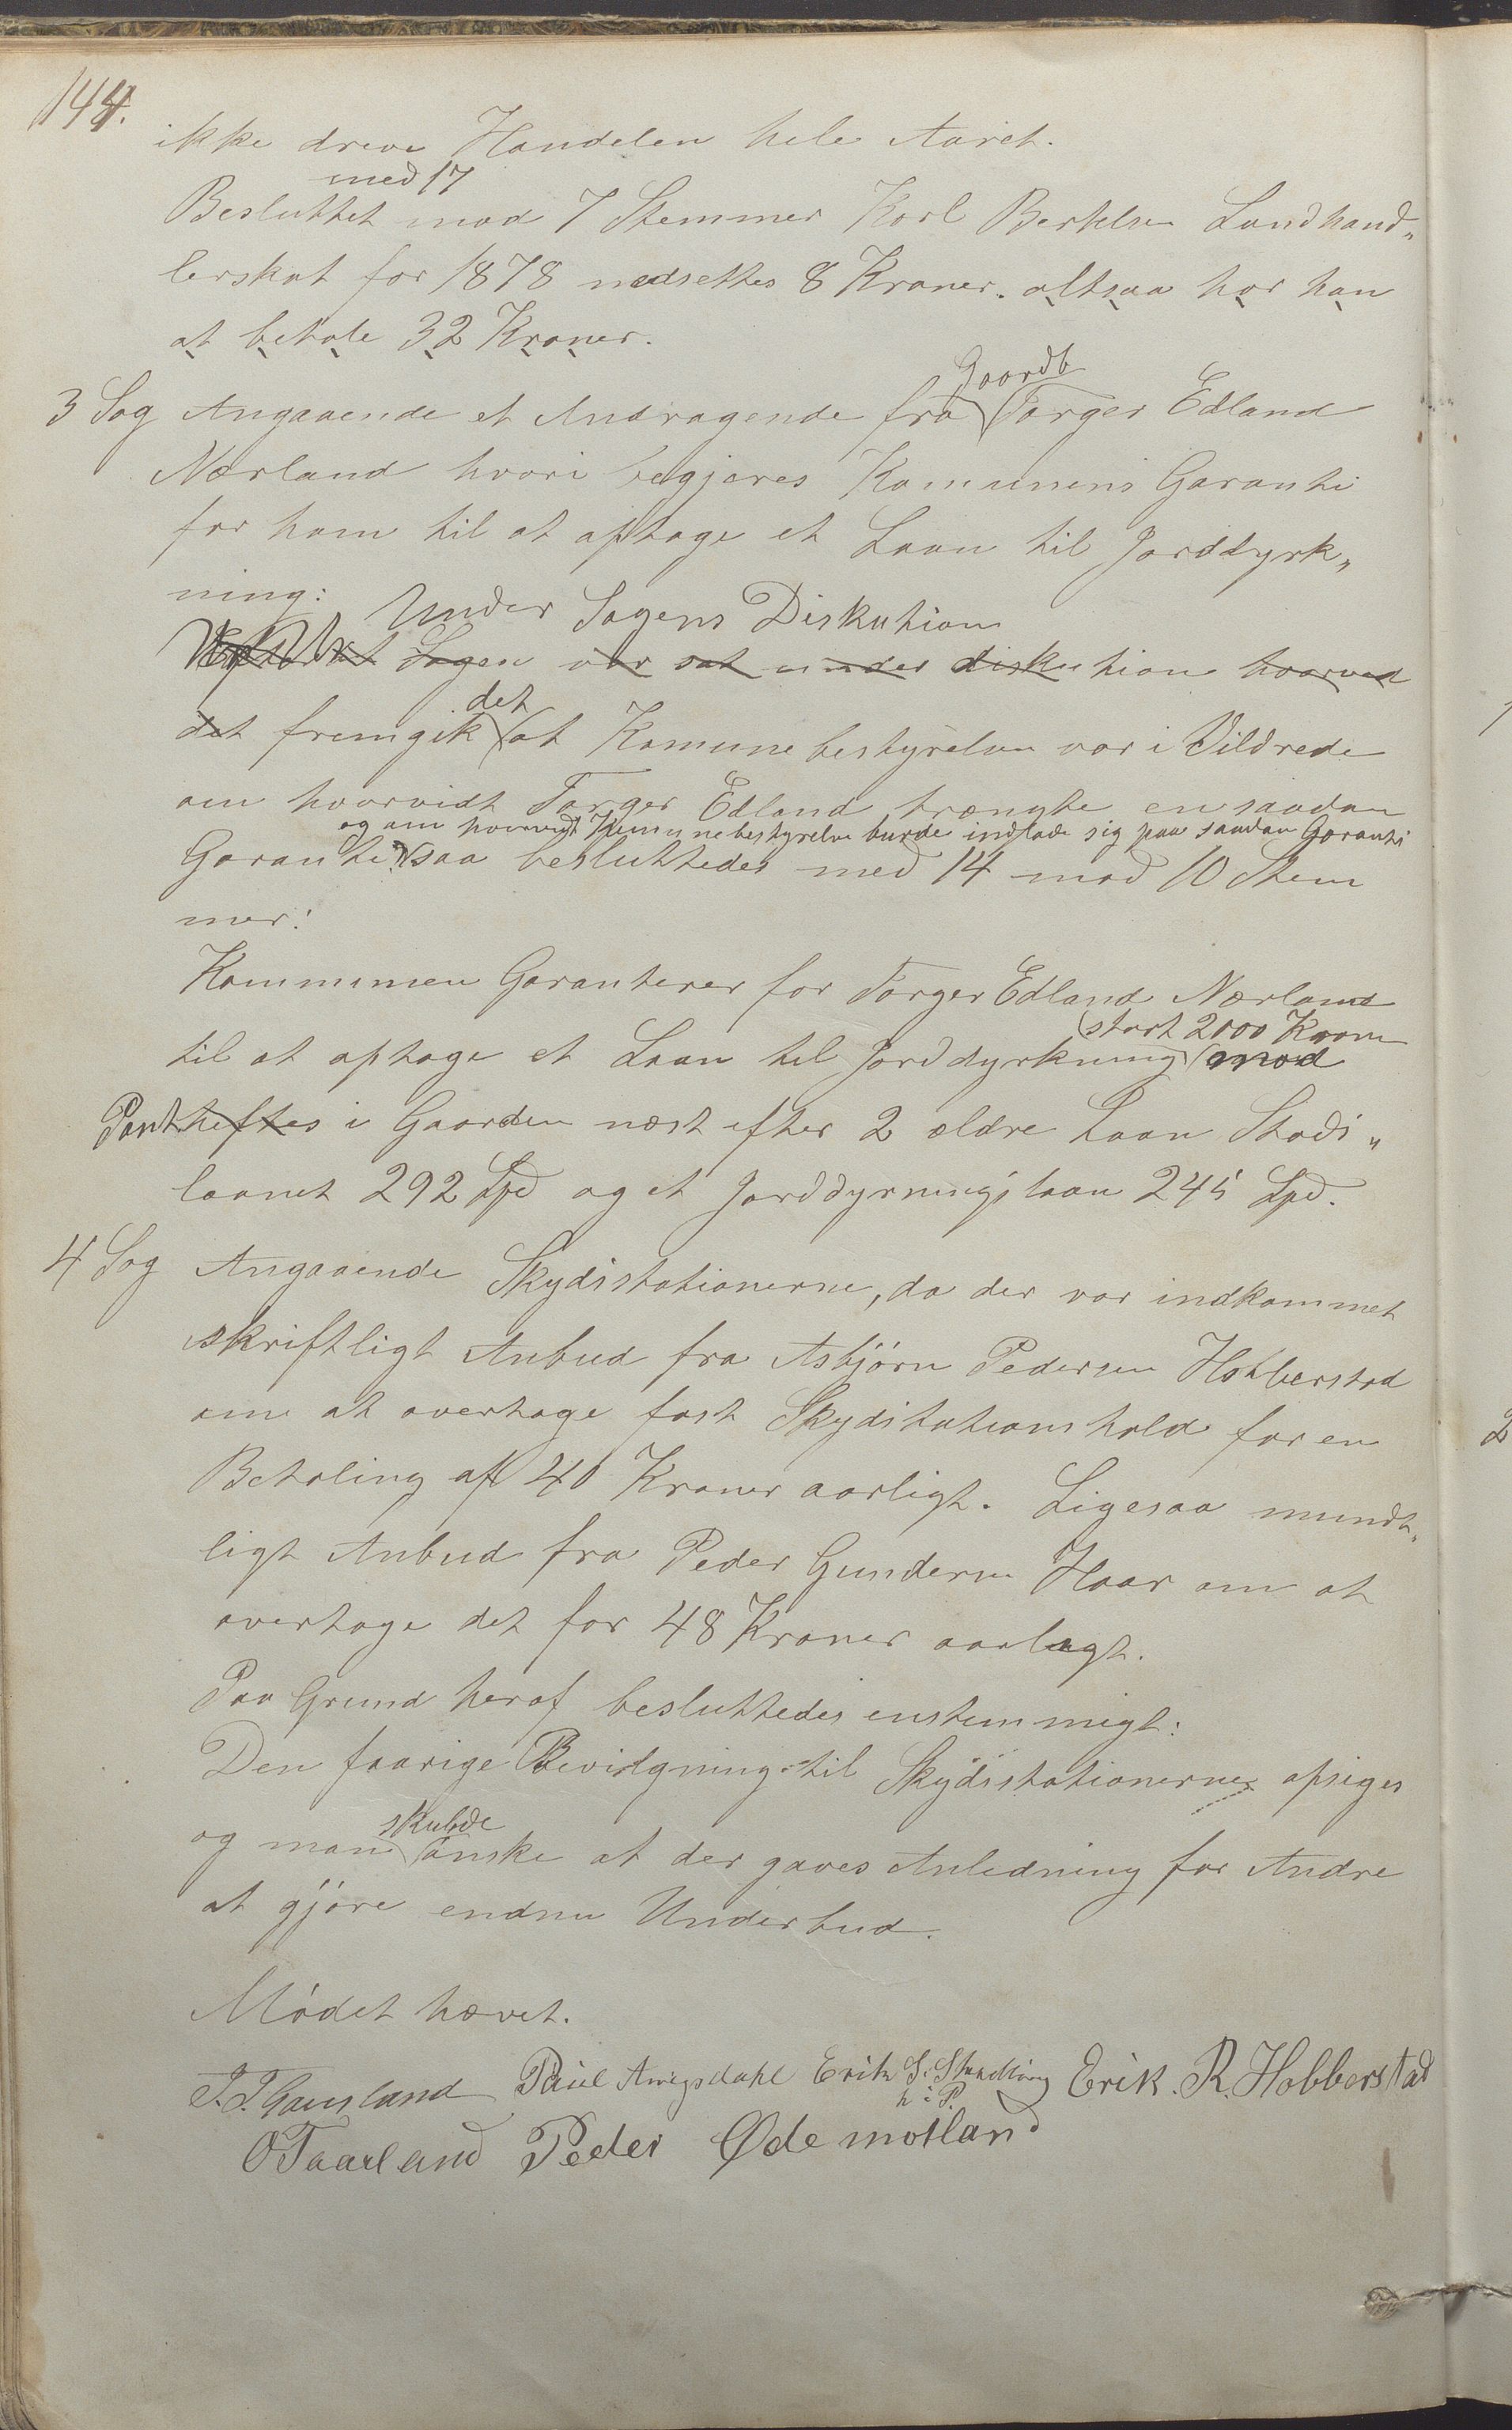 144.
ikke dreve Handelen hele Aaret.
med 17
Besluttet mod 7 Stemmer Karl Bertelsen Landhand„
lerskat for 1878 nedsettes 8 Kroner. altsaa har han
at betale 32 Kroner.
Gaardb
3 Sag Angaaende et Andragende fra Tørger Edland
Nærland hvori begjæres Komunens Garanti
for ham til at optage et Laan til Jorddyrk„
ning:
Under Sagens Diskution
Sagen var sat under diskution hvorved
det
det fremgik at Komunebestyrelsen var i Vildrede
om hvorvidt Tørger Edland trængte en saadan
og om hvorvidt Komunebestyrelsen burde indlade sig paa saadan Garanti
Garanti saa besluttedes med 14 mod 10 Stem
mer:
Kommunen Garanterer for Tørger Edland Nærland
stort 2000 Kroner
til at optage et Laan til Jorddyrkning mod
Pant heftes i Gaarden næst efter 2 ældre Laan Stads„
laanet 292 Spd og et Jorddyrningslaan 245 Spd.
4 Sag Angaaende Skydsstationerne, da der var indkommet
skriftligt Anbud fra Asbjörn Pedersen Hobberstad
om at overtage fast Skydstationshold for en
Betaling af 40 Kroner aarligt. Ligesaa mundt„
ligt Anbud fra Peder Gundersen Haar om at
overtage det for 48 Kroner aarlegt.
Paa Grund heraf besluttedes enstemmigt:
Den faarige Bevilgning til Skydsstationerne opsiges
skulde
og man önske at der gaves Anledning for Andre
at gjöre endnu Underbud.
Mödet hævet.
T. T. Gausland Paul Aniksdahl Erik S. Erik. R. Hobberstad
h. i P.
O Taarland Peder Ødemotland